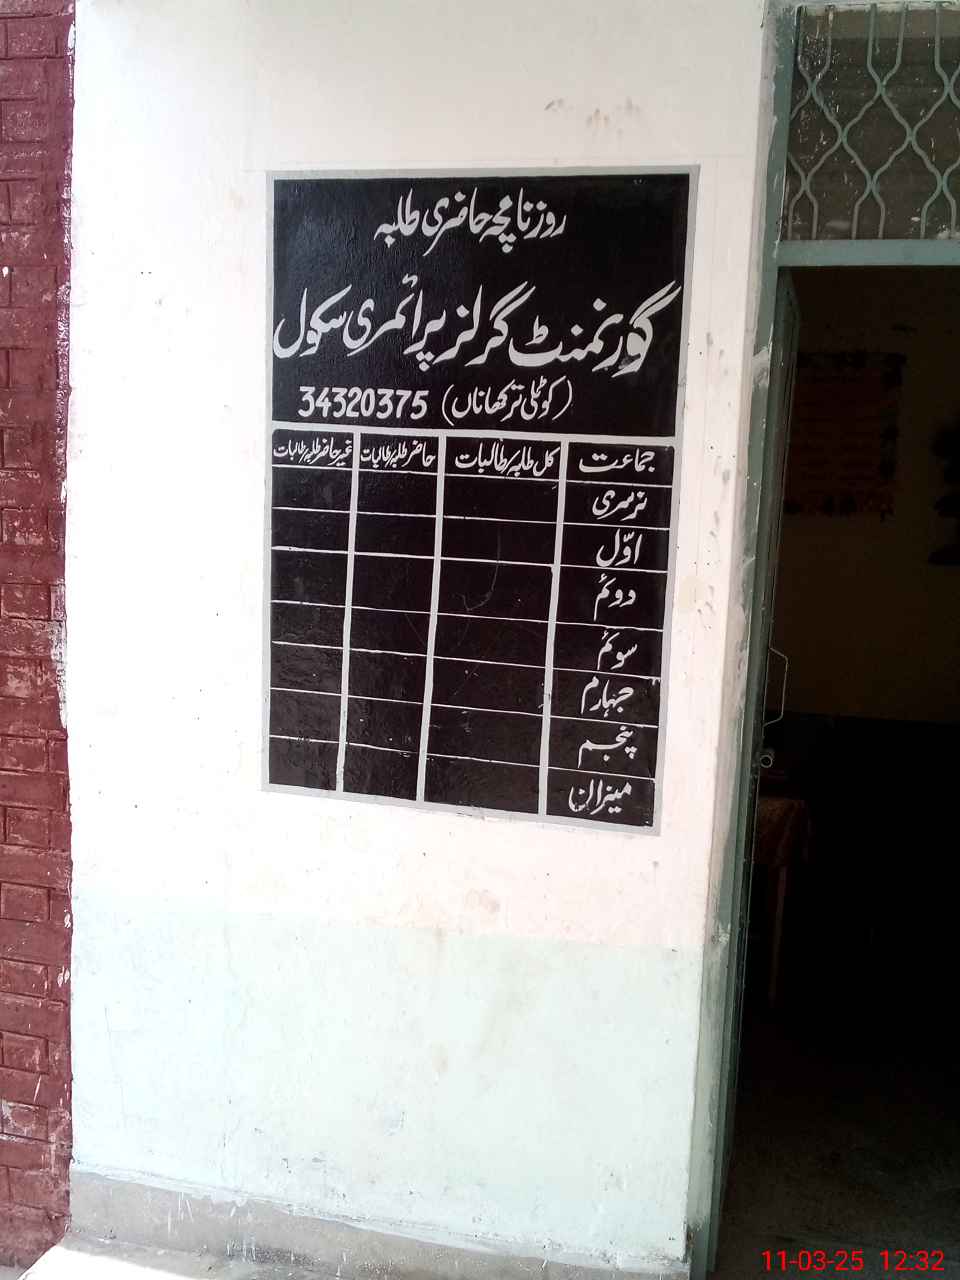 روزنامچہ حاضری طلبہ
گورنمنٹ گرلز پرائمری سکول
(کوٹلی ترکھاناں) 34320375
جماعت کل طلبہ/طالبات حاضر طلبہ/طالبات غیر حاضر طلبہ/طالبات
نرسری
اوّل
دوئم
سوئم
چہارم
پنجم
میزان
11-03-25 12:32